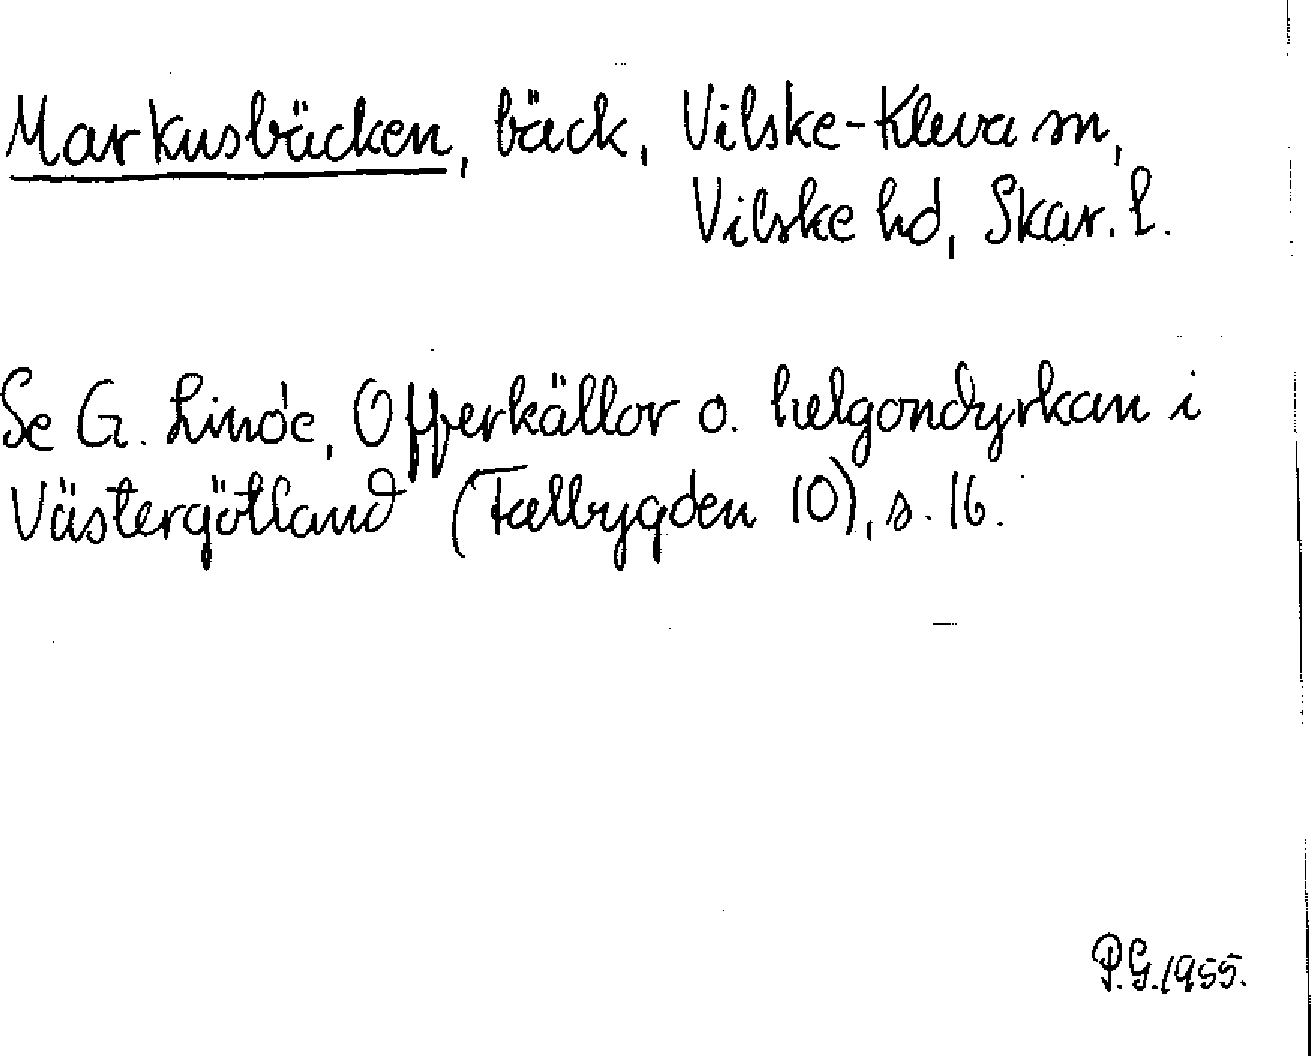 Markusbäcken, bäck, Vilske-Kleva sn,
Vilske hd, Skar. l.
Se G. Linde, Offerkällor o. helgondyrkan i
Västergötland (Falbygden 10), s. 16.
P.G. 1955.